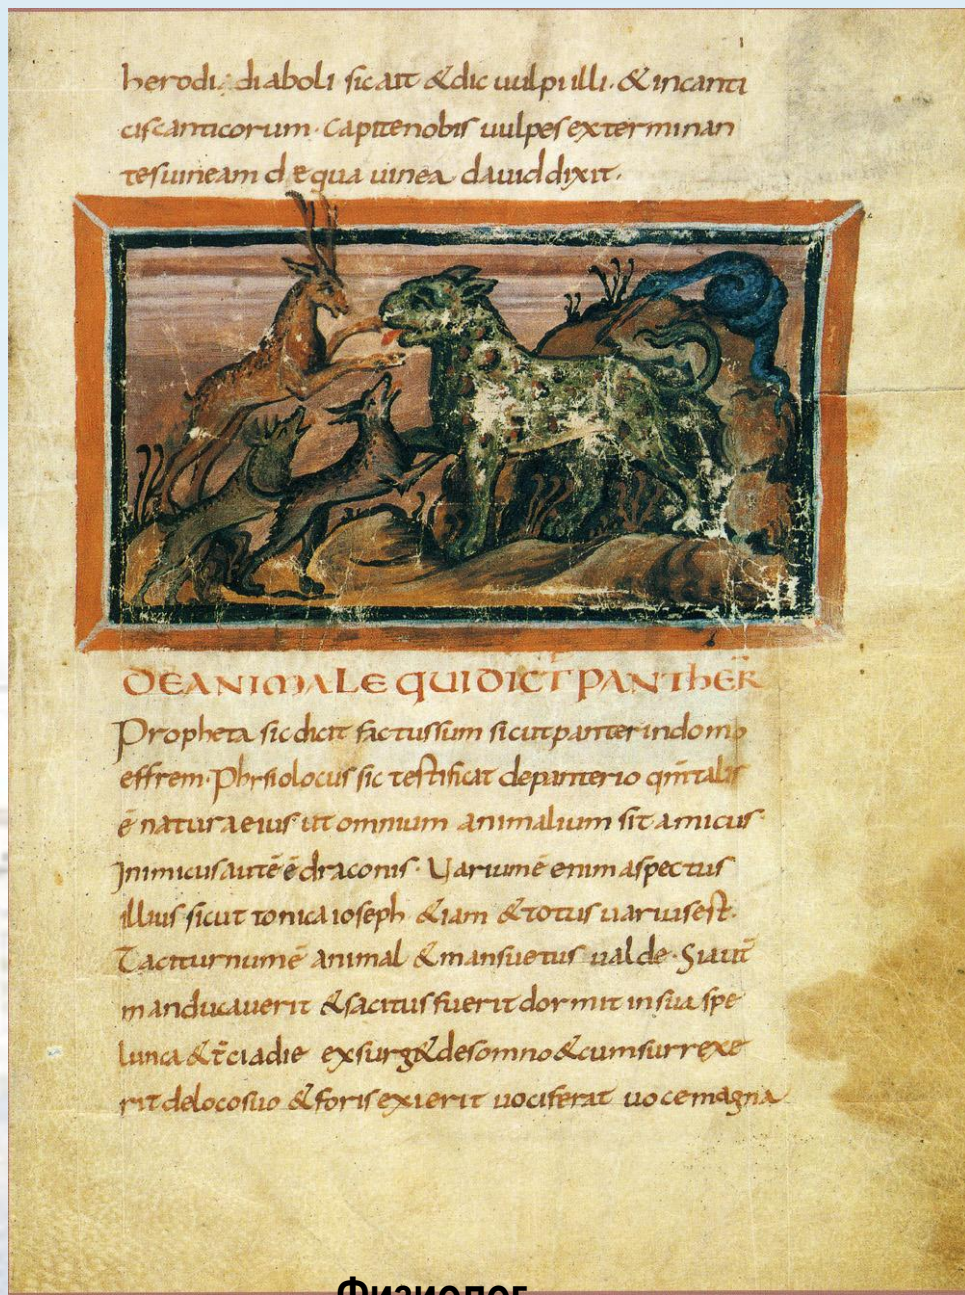 herodi diaboli sicait & dic uulpi illi · & in canti
cis canticorum · Capite nobis uulpes exterminan
tes uineam de qua uinea dauid dixit ·
DE ANIMALE QUI DICT̄ PANTHER̄
Propheta sic dicit factus sum sicut panter in domo
effrem · Phisiolocus sic testificat de panterio qm̄ talis
ē natura eius ut omnium animalium sit amicus ·
Inimicus autē ē draconis · Uarium ē enim aspectus
illius sicut tonica ioseph & iam & totus uarius est ·
Taciturnum ē animal & mansuetus ualde · Si aut̄
manducauerit & sacitus fuerit dormit in sua spe
lunca & t̄cia die exsurg& de somno & cum surrexe
rit de loco suo & foris exierit uociferat uoce magna
Физиолог